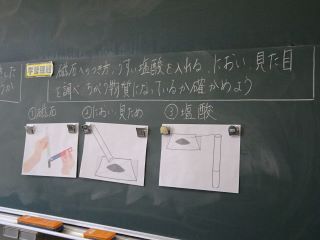 学習課題
磁石へのつき方、うすい塩酸を入れる、におい、見た目
を調べ、ちがう物質になっているか確かめよう
①磁石
②におい・見ため
③塩酸